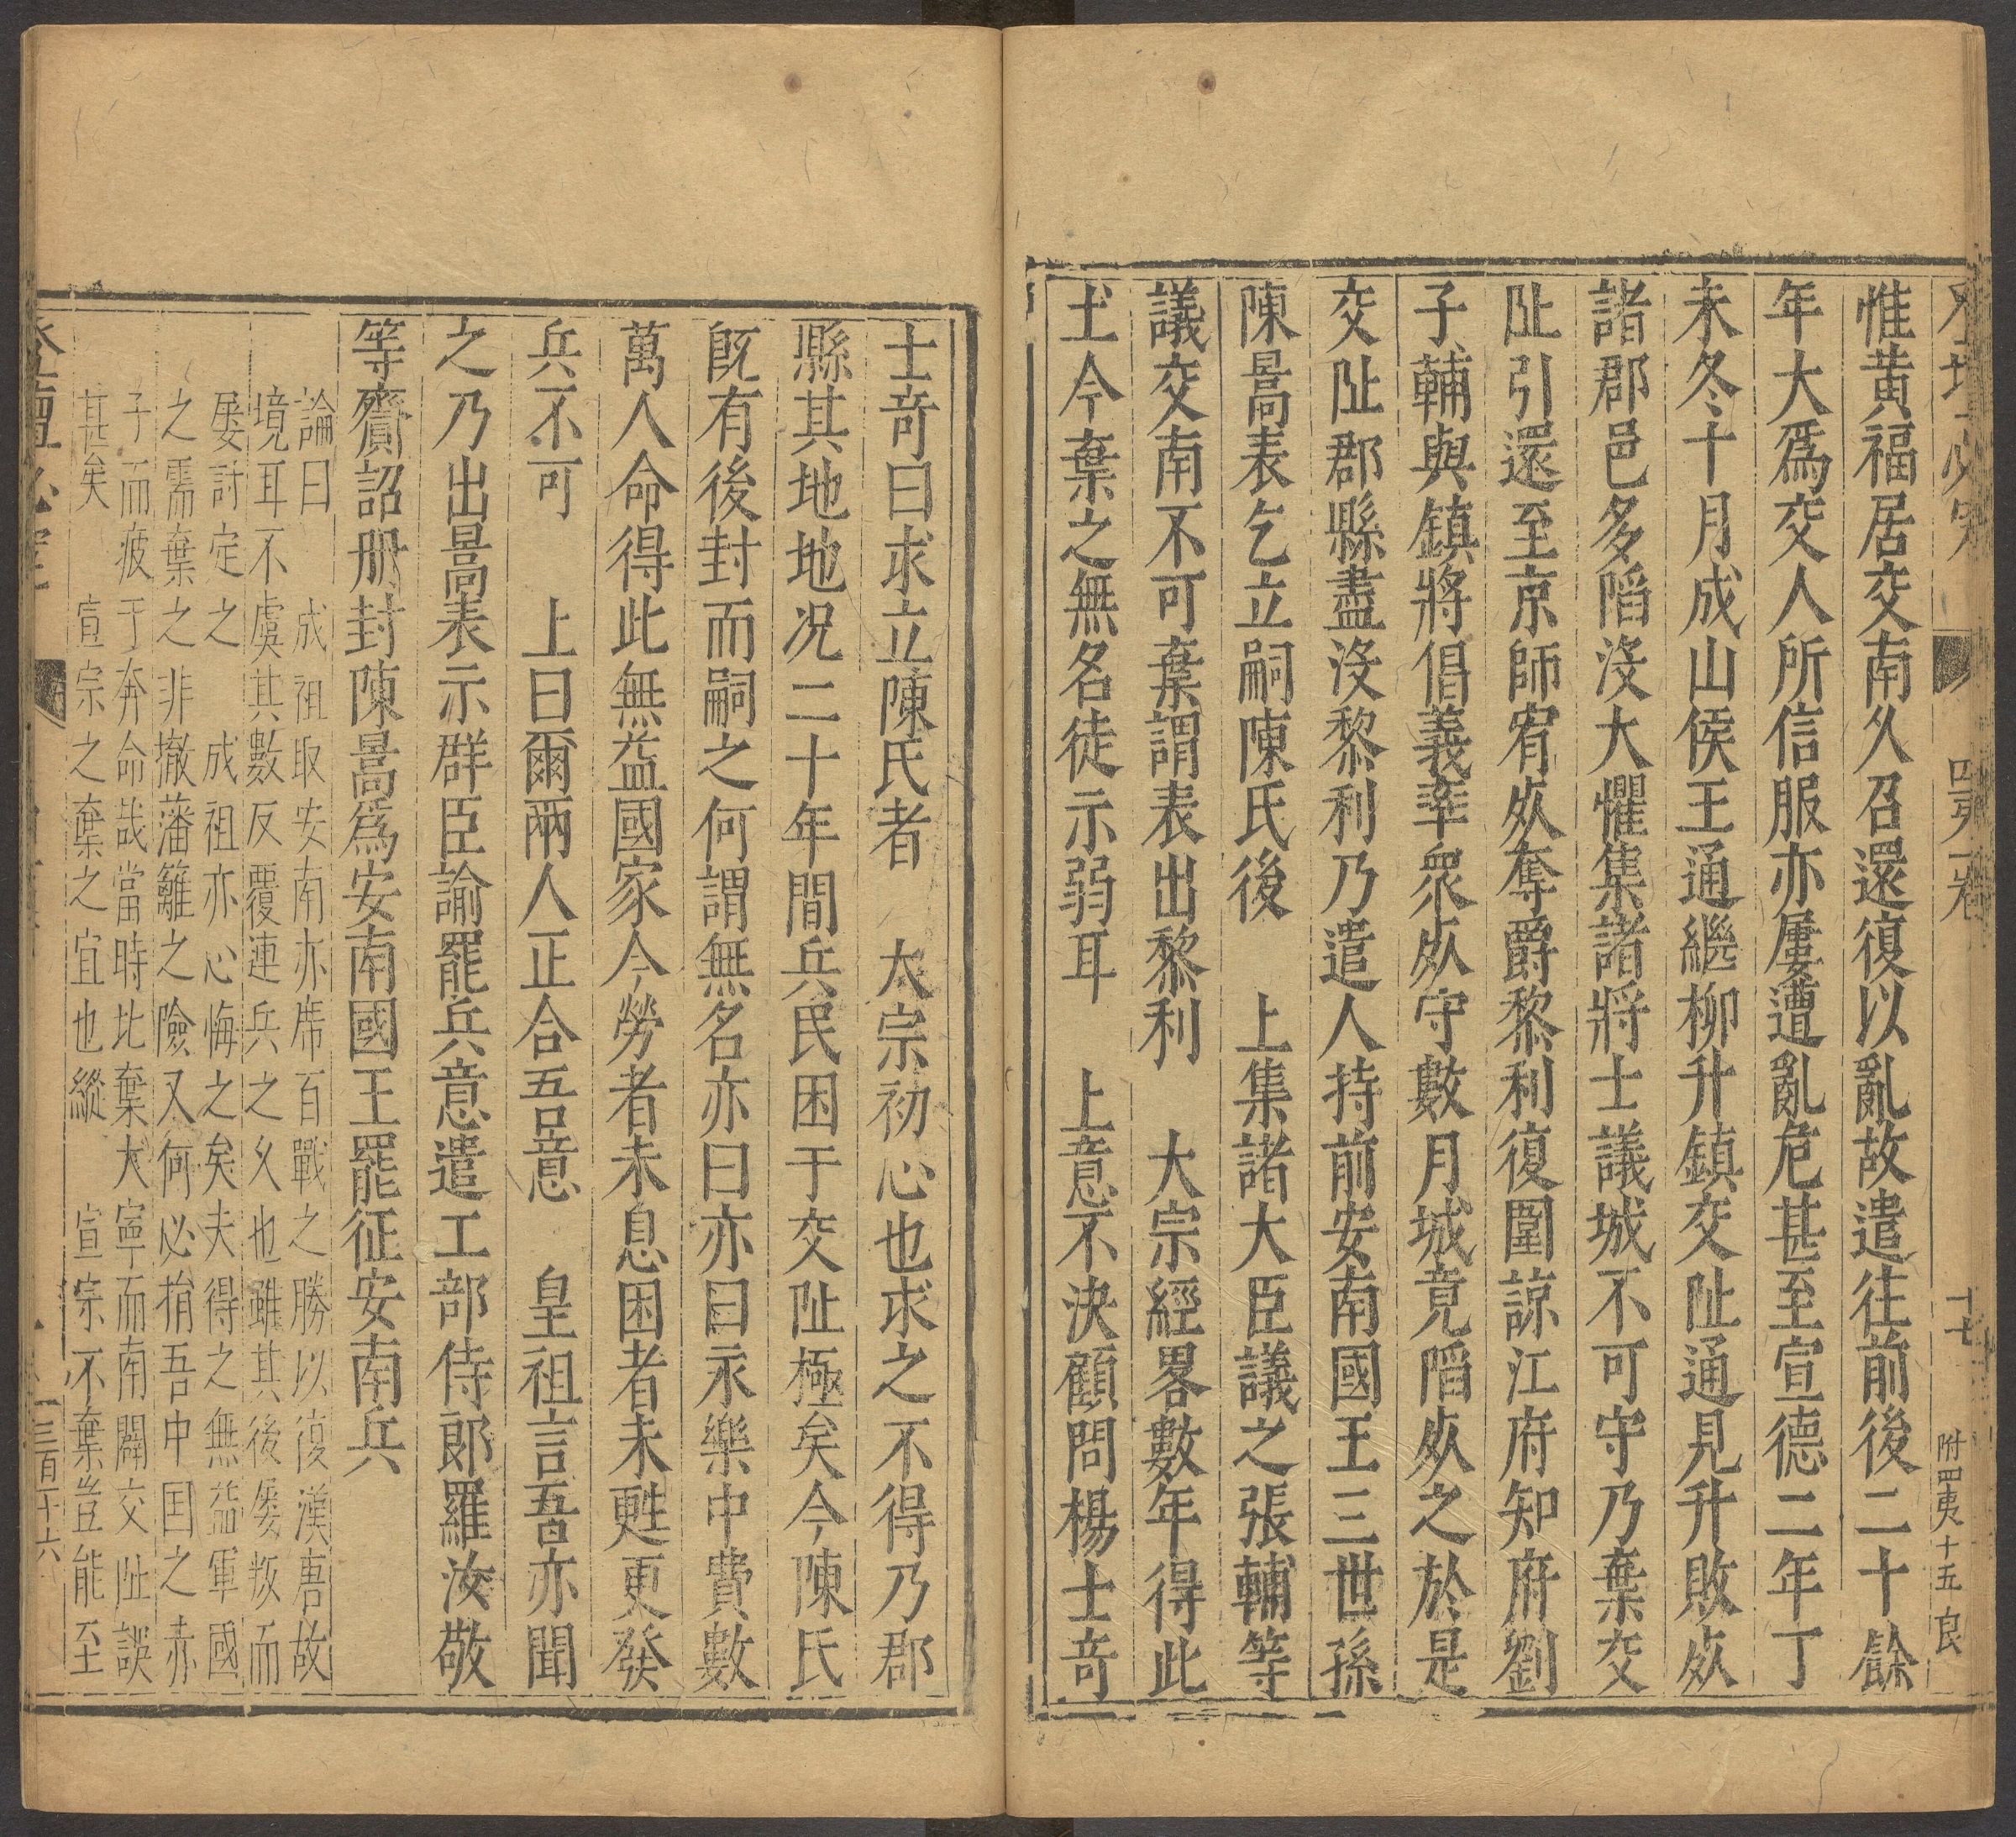 四夷一卷 十七 附四夷十五 良
惟黄福居交南久召還復以亂故遣往前後二十餘
年大爲交人所信服亦屢遭亂危甚至宣德二年丁
未冬十月成山侯王通繼柳升鎮交阯通見升敗灻
諸郡邑多䧟没大懼集諸將士議城不可守乃棄交
阯引還至京師宥灻奪爵黎利復圍諒江府知府劉
子輔與鎮將倡義率衆灻守數月城竟䧟灻之於是
交阯郡縣盡没黎利乃遣人持前安南國王三世孫
陳暠表乞立嗣陳氏後　上集諸大臣議之張輔等
議交南不可棄謂表出黎利　大宗經畧數年得此
土今棄之無名徒示弱耳　上意不決顧問楊士奇
士奇曰求立陳氏者　太宗初心也求之不得乃郡
縣其地地况二十年間兵民困于交阯極矣今陳氏
旣有後封而嗣之何謂無名亦曰亦曰永樂中費數
萬人命得此無益國家今勞者未息困者未甦更發
兵不可　上曰爾兩人正合吾意　皇祖言吾亦聞
之乃出暠表示群臣諭罷兵意遣工部侍郎羅汝敬
等齎詔册封陳暠爲安南國王罷征安南兵
論曰　成祖取安南亦席百戰之勝以復漢唐故
境耳不虞其數反覆連兵之久也雖其後屡叛而
屡討定之　成祖亦心悔之矣夫得之無益軍國
之需棄之非撤藩籬之險又何必捐吾中国之赤
子而疲于奔命哉當時比棄大寧而南闢交阯誤
甚矣　宣宗之棄之宜也縱　宣宗不棄豈能至
登壇必究 三百十六